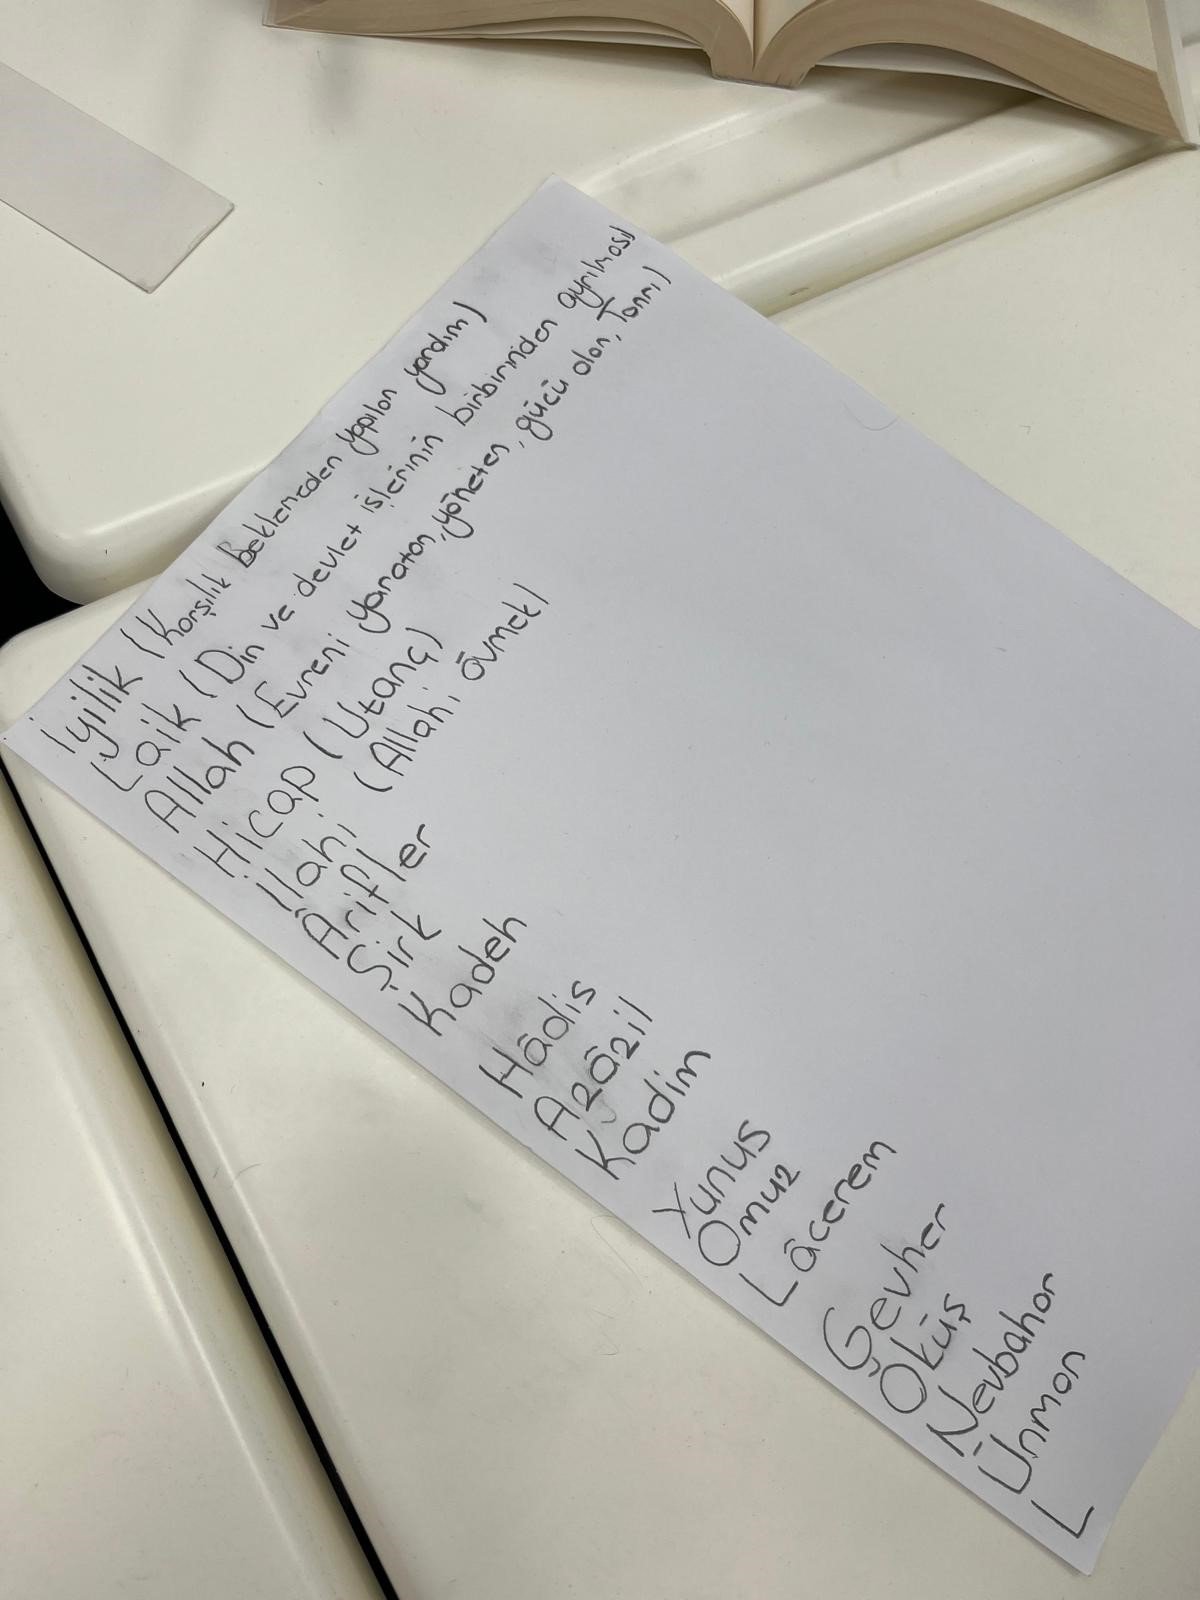 İyilik (Karşılık Beklemeden yapılan yardım)
Laik (Din ve devlet işlerinin birbirinden ayrılması)
Allah (Evreni yaratan, yöneten, gücü olan, Tanrı)
Hicap (Utanç)
İlahi (Allahı övmek)
Ârifler
Şirk
Kadeh
Hâdis
Azâzil
Kadim
Yunus
Omuz
Lâcerem
Gevher
Öküş
Nevbahar
Ünman
L